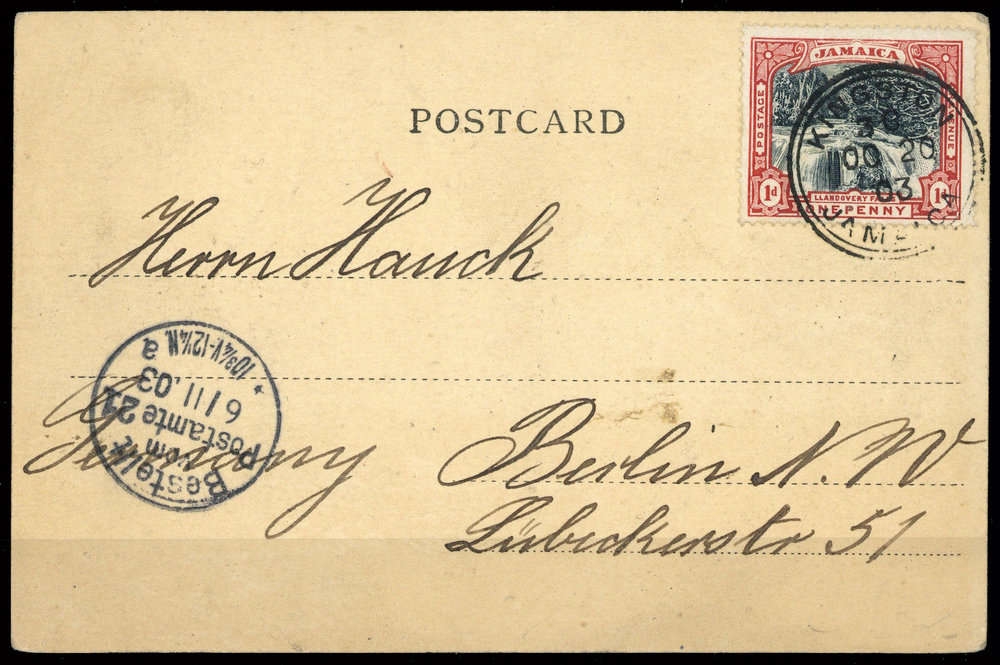 JAMAICA
POSTAGE
1d
LLANDOVERY
1d
ONE PENNY
KINGSTON
OC 20
03
JAMAICA
POSTCARD
Herrn Hauck
Germany
Berlin N. W
Lübeckerstr 51
Bestellt
vom
Postamte 21
6/11.03
10¾V-12¼N. a